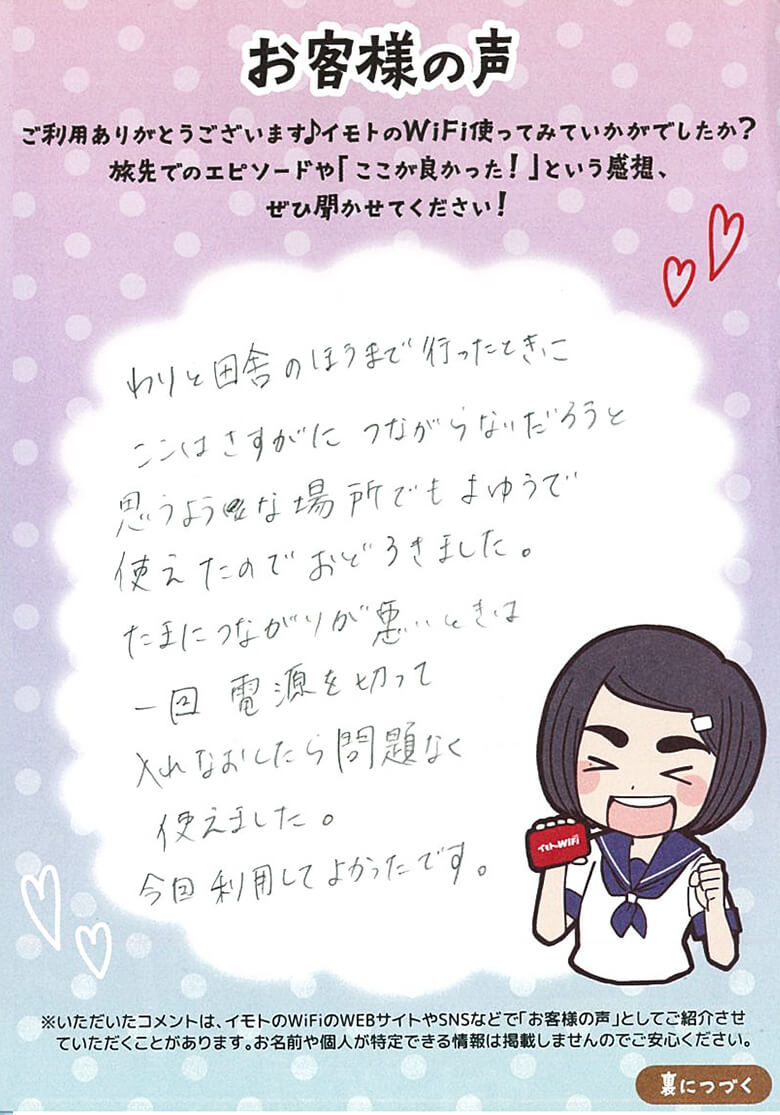 お客様の声
ご利用ありがとうございます♪イモトのWiFi使ってみていかがでしたか?
旅先でのエピソードや「ここが良かった!」という感想、
ぜひ聞かせてください!
わりと田舎のほうまで行ったときに
ここはさすがに つながらないだろうと
思うような場所でもよゆうで
使えたのでおどろきました。
たまにつながりが悪いときは
一回 電源を切って
入れなおしたら問題なく
使えました。
今回利用してよかったです。
イモトのWiFi
※いただいたコメントは、イモトのWiFiのWEBサイトやSNSなどで「お客様の声」としてご紹介させ
ていただくことがあります。お名前や個人が特定できる情報は掲載しませんのでご安心ください。
裏につづく